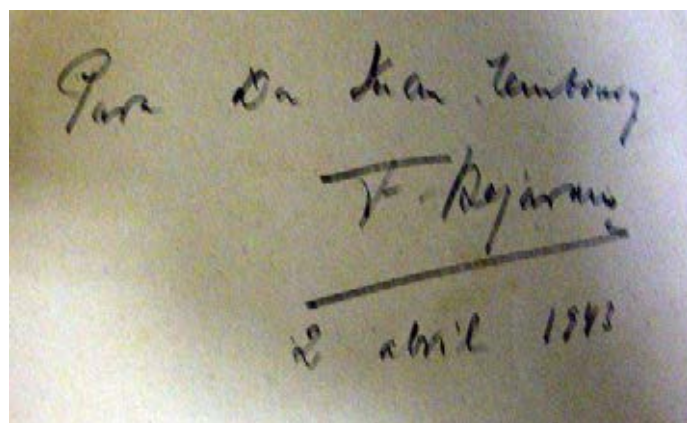 Para Dn Juan Temboury
F. Bejarano
2 abril 1943